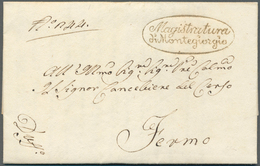 N.° 244
Magistratura
di Montegiorgio
All' Illmo Sigr. Sigr. Pne Colmo
Il Signor Cancelliere del Censo
Fermo